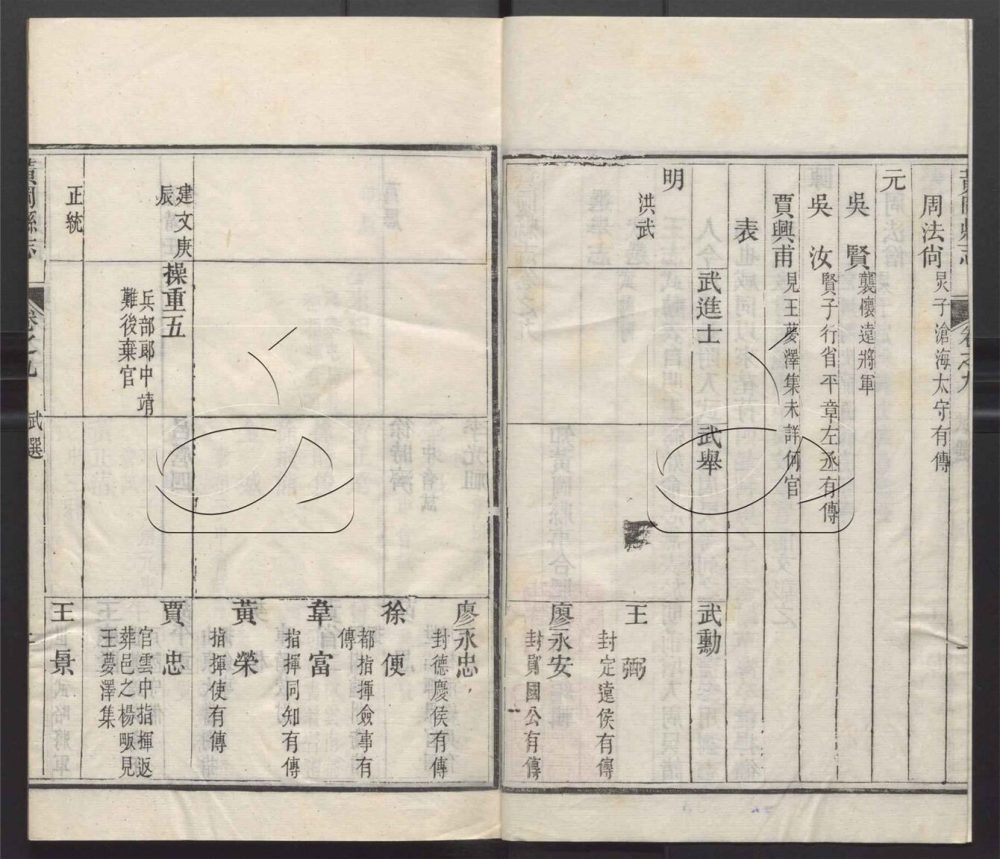 黃岡縣志 卷之九
周法尙 炅子滄海太守有傳
元
吳賢 襲懷遠將軍
吳汝 賢子行省平章左丞有傳
賈興甫 見王夢澤集未詳何官
表
武進士 武舉 武勳
明
洪武
王弼 封定遠侯有傳
廖永安 封鄖國公有傳
廖永忠 封德慶侯有傳
徐便 都指揮僉事有傳
韋富 指揮同知有傳
黃榮 指揮使有傳
建文庚辰
操重五 兵部郎中靖難後棄官
賈忠 官雲中指揮返葬邑之楊畈見王夢澤集
正統
王景
黃岡縣志 卷之九 武選